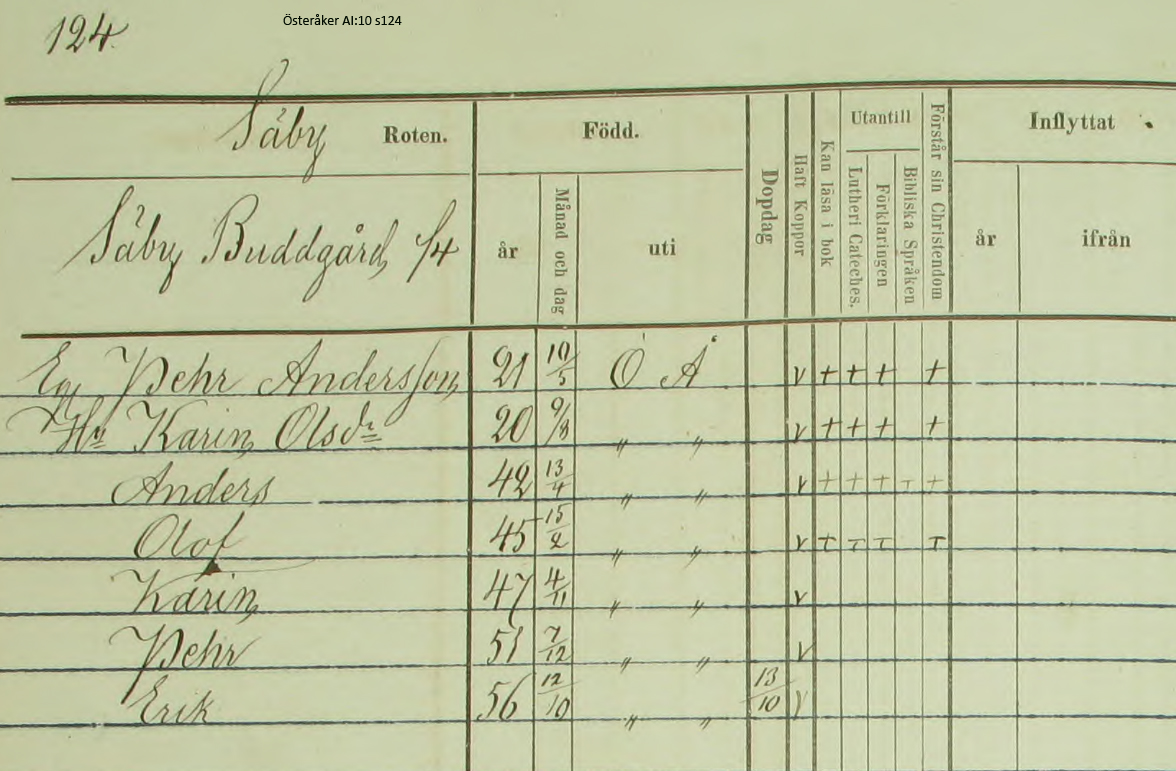 124.
Österåker AI:10 s124
Säby Roten.
Född.
Dopdag
Haft Koppor
Kan läsa i bok
Utantill
Förstår sin Christendom
Inflyttat
Säby Buddgård 1/4
år
Månad och dag
uti
Lutheri Cateches.
Förklaringen
Bibliska Språken
år
ifrån
Eg Pehr Andersson 21 10/5 Ö Å v + + + +
Hu Karin Olsdr 20 9/8 " " v + + + +
Anders 42 13/4 " " v + + + т +
Olof 45 15/2 " " v + т т т
Karin 47 4/11 " " v
Pehr 51 7/12 " " v
Erik 56 12/10 " " 13/10 v